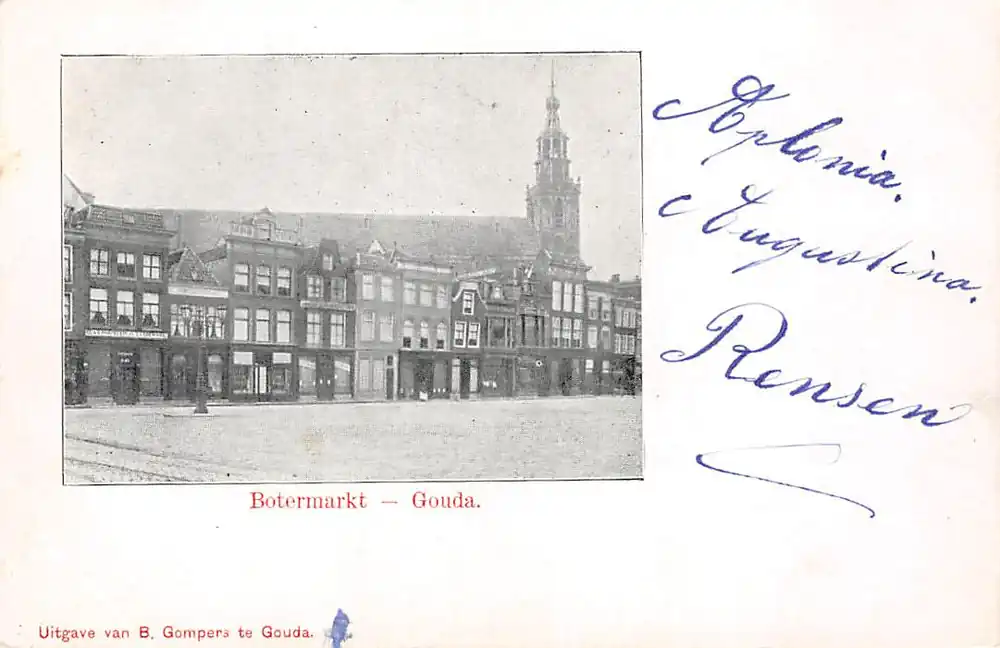 Aplonia.
Augustina.
Rensen
Botermarkt — Gouda.
Uitgave van B. Gompers te Gouda.